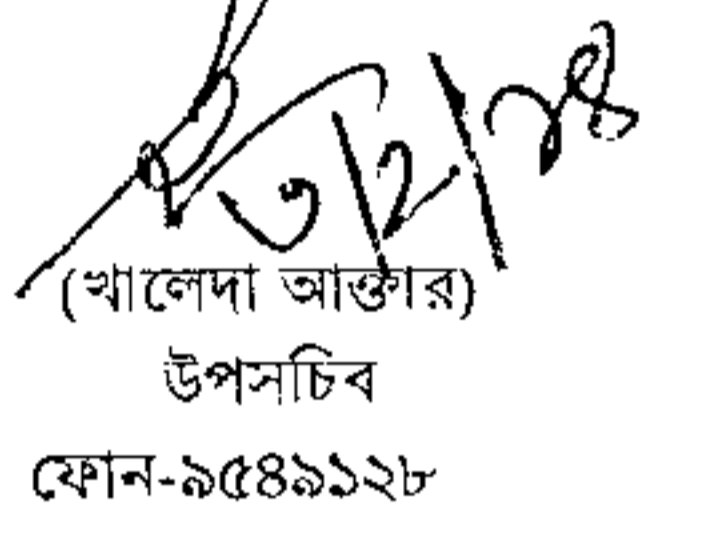 ৩/২/১৪
(খালেদা আক্তার)
উপসচিব
ফোন-৯৫৪৯১২৮